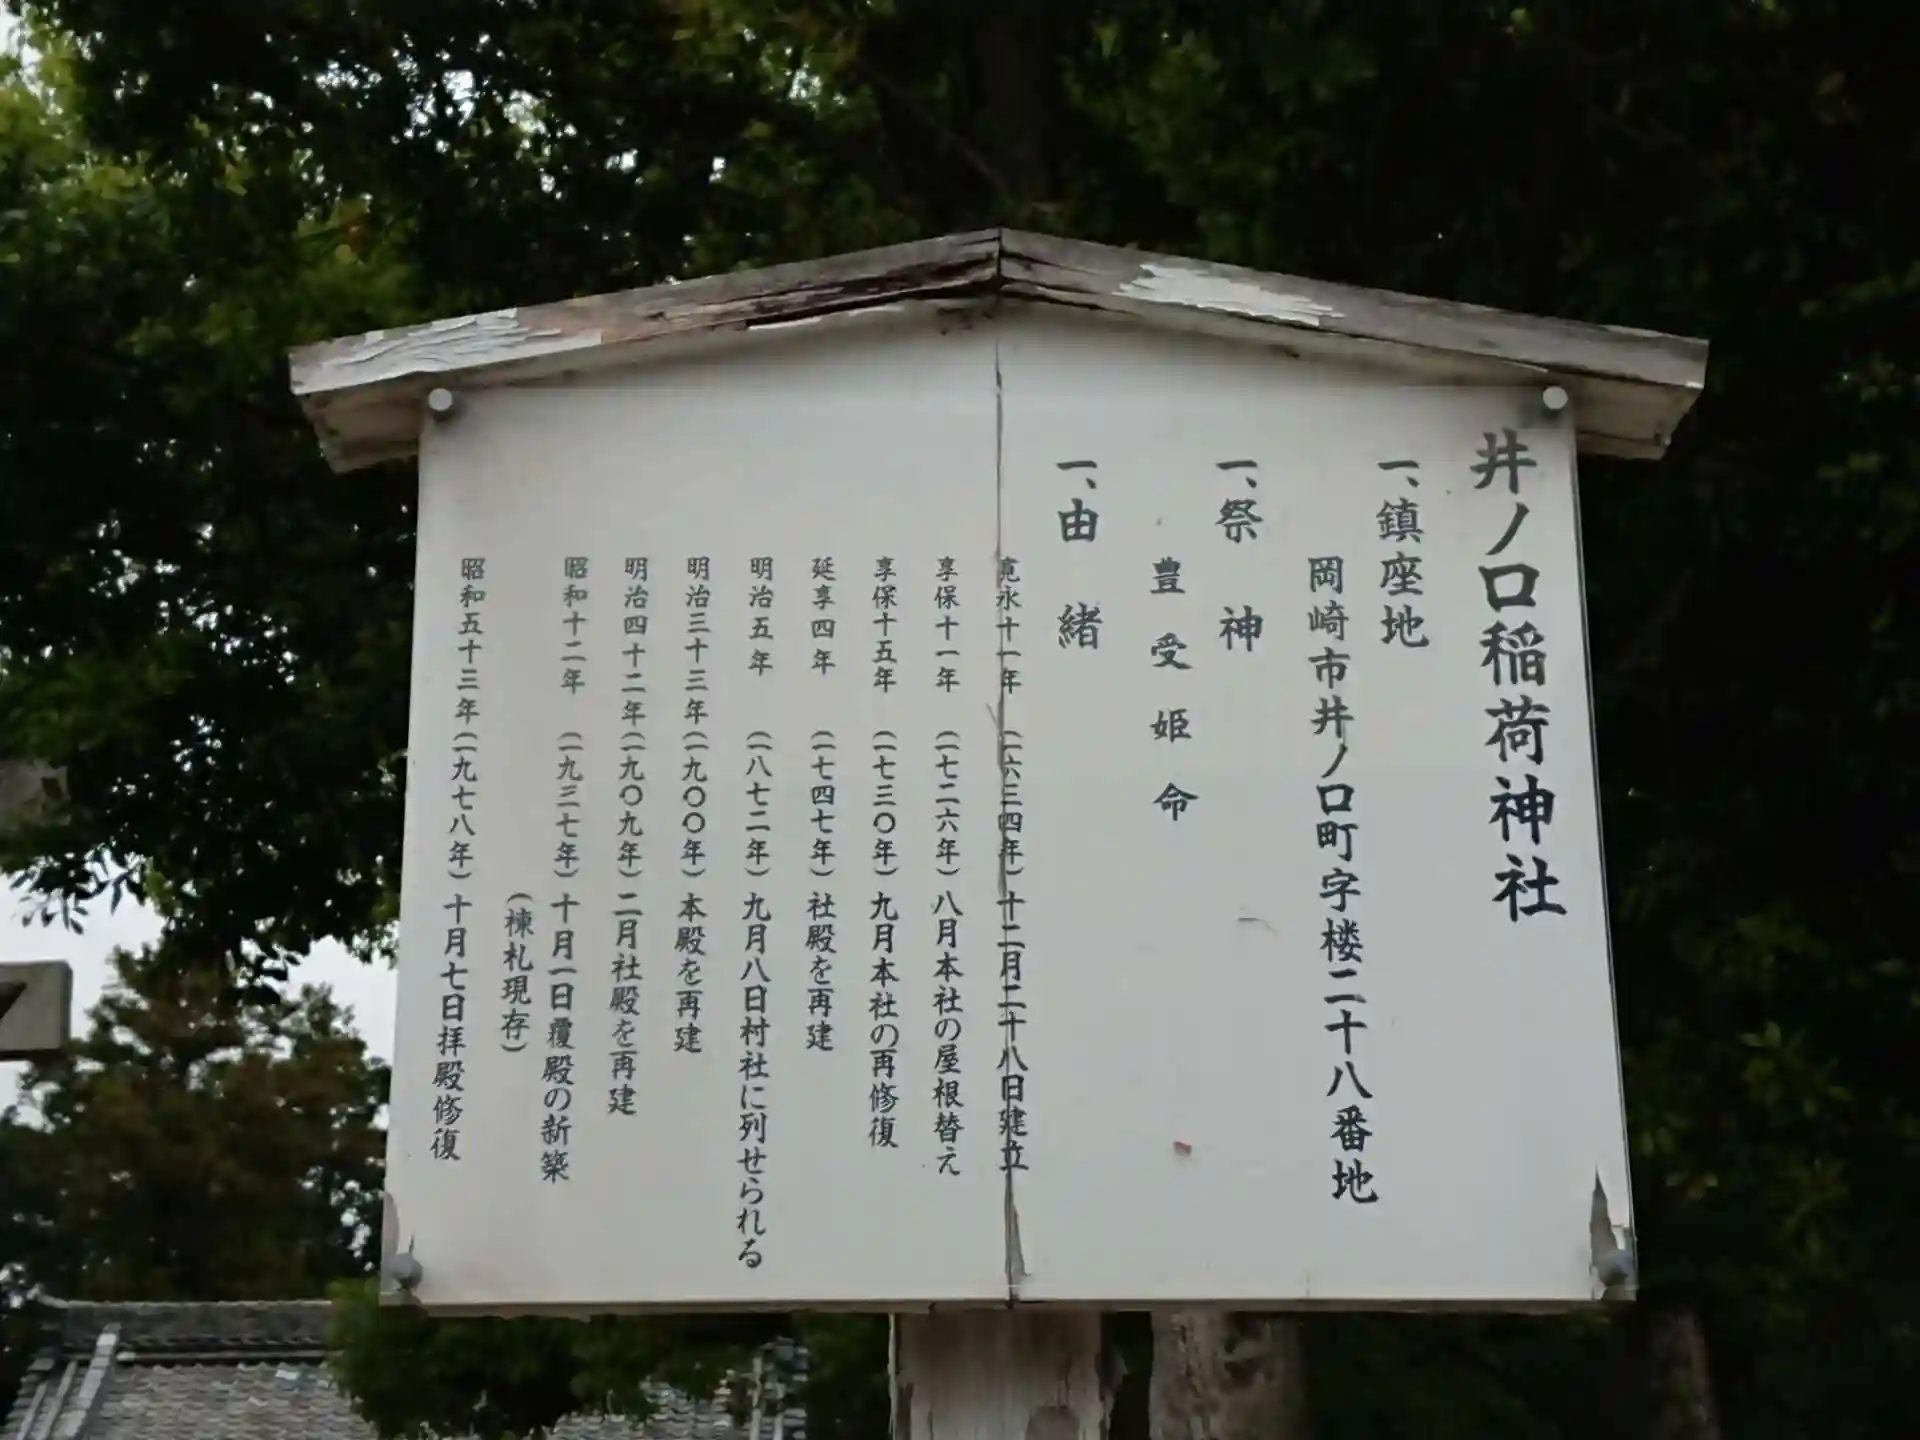 井ノ口稲荷神社
一、鎮座地
岡崎市井ノ口町字楼二十八番地
一、祭神
豊受姫命
一、由緒
寛永十一年(一六三四年)十二月二十八日建立
享保十一年(一七二六年)八月本社の屋根替え
享保十五年(一七三〇年)九月本社の再修復
延享四年(一七四七年)社殿を再建
明治五年(一八七二年)九月八日村社に列せられる
明治三十三年(一九〇〇年)本殿を再建
明治四十二年(一九〇九年)二月社殿を再建
昭和十二年(一九三七年)十月一日覆殿の新築
(棟札現存)
昭和五十三年(一九七八年)十月七日拝殿修復